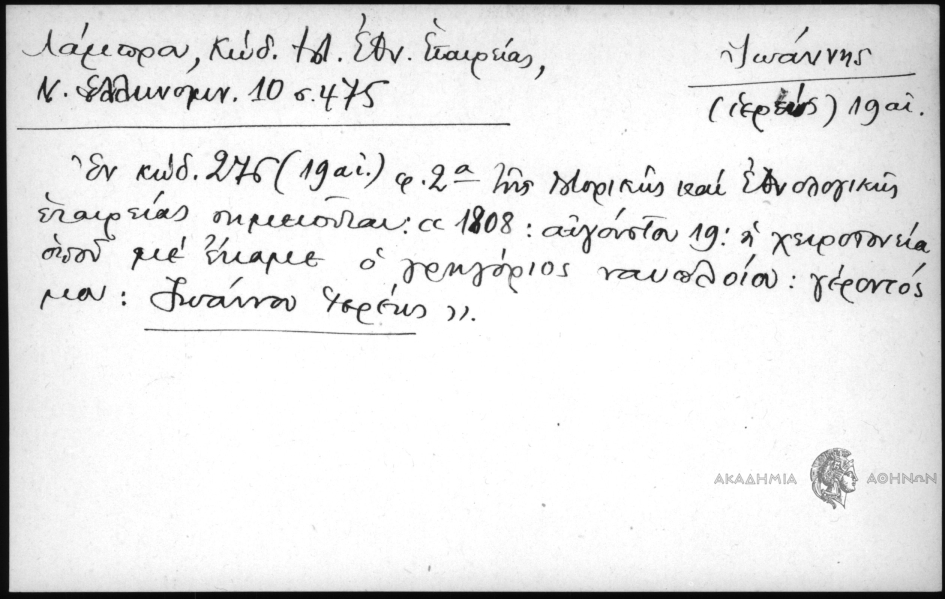 Λάμπρου, Κώδ. Ἱστ. Ἐθν. Ἑταιρείας,
Ν. Ἑλληνομν. 10 σ. 475
Ἰωάννης
(ἱερεὺς) 19 αἰ.
Ἐν κώδ. 276 (19 αἰ.) φ. 2α τῆς Ἱστορικῆς καὶ Ἐθνολογικῆς
ἑταιρείας σημειοῦται: « 1808 : αὐγούστου 19: ἡ χειροτονεία
ὁποῦ μὲ ἔκαμε ὁ γρηγόριος ναυπλοίου : γέροντός
μου : Ἰωάννου Ἱερέως ».
ΑΚΑΔΗΜΙΑ ΑΘΗΝΩΝ